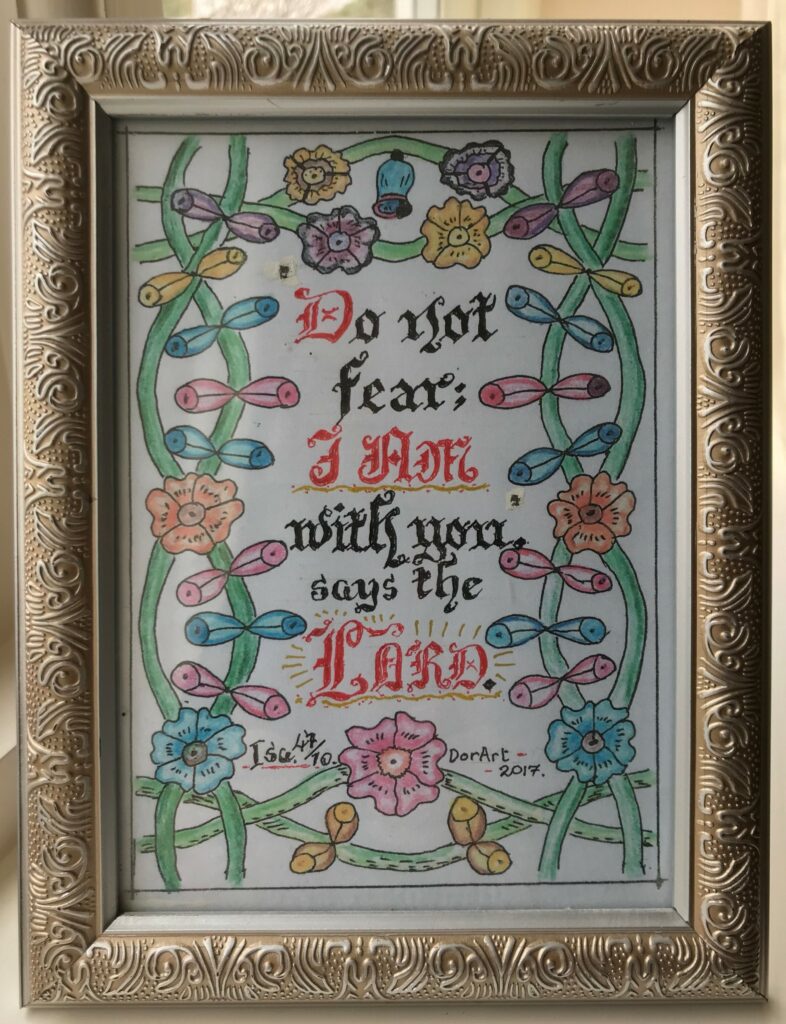 Do not
fear;
I AM
with you,
says the
LORD.
Isa. 47/10.
DorArt
- 2017.